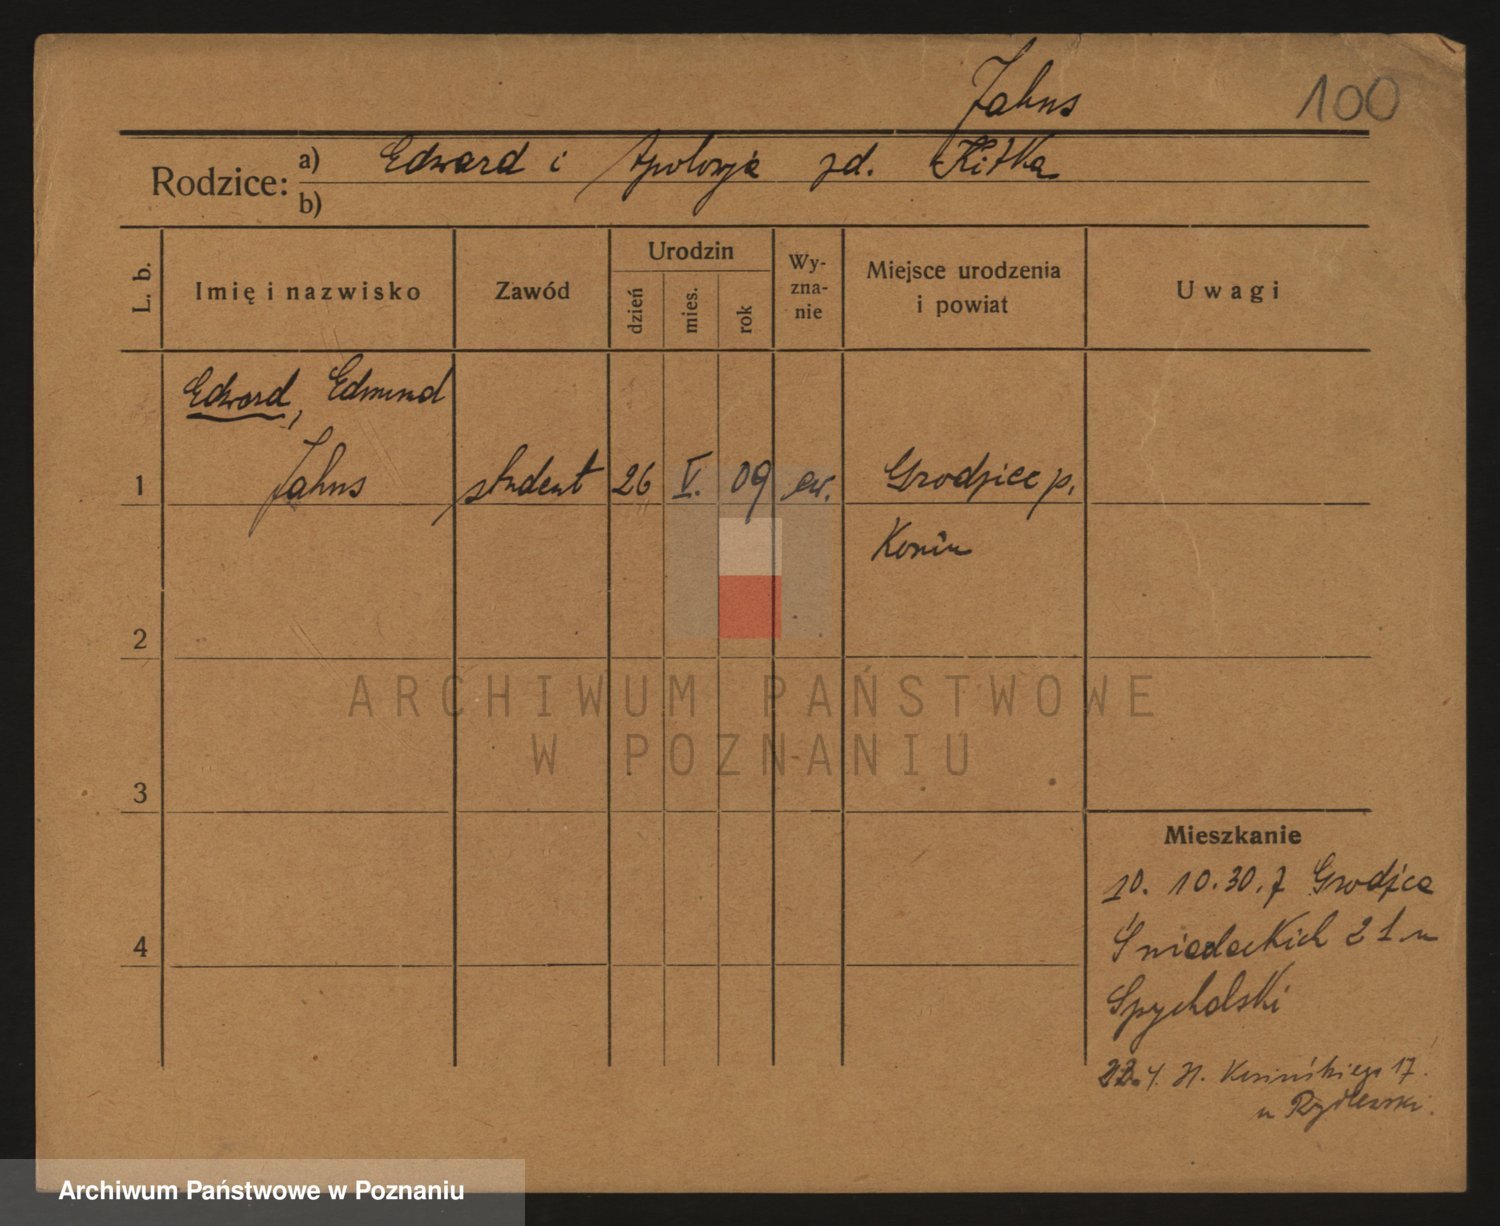 Jahns
100
Rodzice:
a) Edward i Apolonja zd. Kitka
b)
L. b.
Imię i nazwisko
Zawód
Urodzin
dzień
mies.
rok
Wy-
zna-
nie
Miejsce urodzenia
i powiat
Uwagi
Edward, Edmund
1 Jahns student 26 V. 09 ew. Grodziec p.
Konin
2
ARCHIWUM PAŃSTWOWE
W POZNANIU
3
Mieszkanie
10. 10. 30. z Grodźca
4 Śniadeckich 21 u
Spychalski
4. Kosińskiego 17.
u Rydlewski.
Archiwum Państwowe w Poznaniu